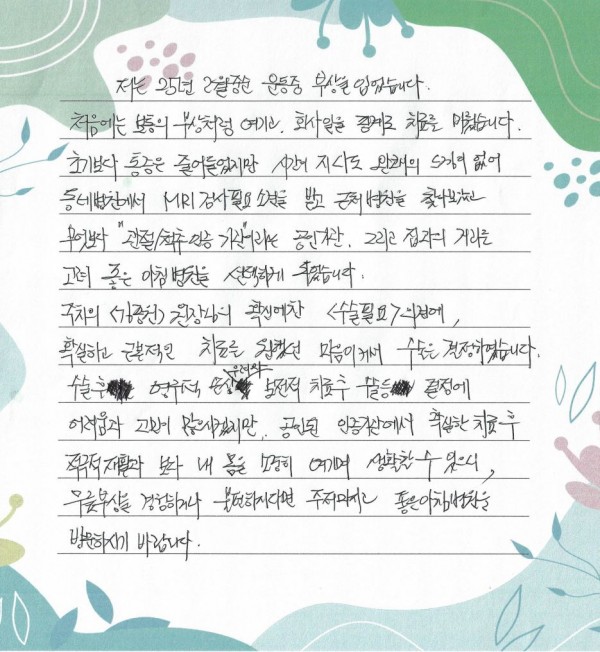 저는 25년 2월중순 운동중 부상을 입었습니다.
처음에는 보통의 부상처럼 여기고, 회사일을 핑계로 치료를 미뤘습니다.
초기보다 통증은 줄어들었지만 시간이 지나도 완쾌의 느낌이 없어
동네병원에서 MRI 검사필요 소견을 받고 근처병원을 찾아보았고
무엇보다 "관절/척추 인증 기관"이라는 공인기관. 그리고 집과의 거리를
고려 좋은 아침병원을 선택하게 되었습니다.
주치의 <김종천> 원장님의 확신에찬 <수술필요> 의견에,
확실하고 근본적인 치료를 원했던 마음이기에 수술을 결정하였습니다.
수술후 영구적 손상 우려와 보전적 치료후 수술등 결정에
어려움과 고민이 많으시겠지만, 공인된 인증기관에서 확실한 치료후
적극적재활과 보다 내 몸을 소중히 여기며 생활할 수 있으니,
무릎부상을 경험하거나 불편하시다면 주저마시고 좋은아침병원을
방문하시기 바랍니다.